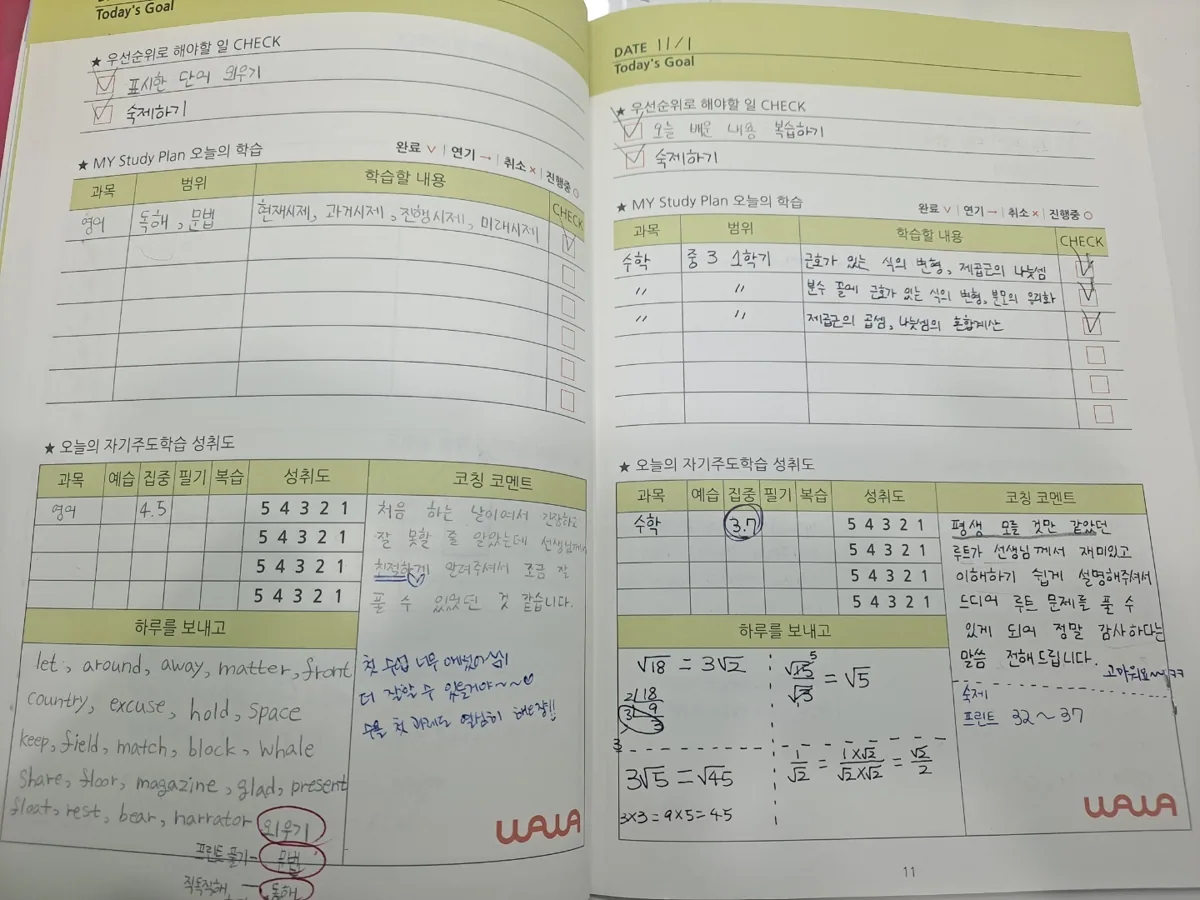 Today's Goal
★ 우선순위로 해야할 일 CHECK
표시한 단어 외우기
숙제하기
★ MY Study Plan 오늘의 학습
완료 ∨ | 연기 → | 취소 × | 진행중 ○
과목 범위 학습할 내용 CHECK
영어 독해, 문법 현재시제, 과거시제, 진행시제, 미래시제
★ 오늘의 자기주도학습 성취도
과목 예습 집중 필기 복습 성취도 코칭 코멘트
영어 4.5 5 4 3 2 1
5 4 3 2 1
5 4 3 2 1
5 4 3 2 1
처음 하는 날이여서 긴장하고
잘 못할 줄 알았는데 선생님께서
친절하게 알려주셔서 조금 잘
풀 수 있었던 것 같습니다.
첫 수업 너무
더 잘할 수 있을거야~~
첫 과제도 열심히
하루를 보내고
let, around, away, matter, front
country, excuse, hold, space
keep, field, match, block, whale
share, floor, magazine, glad, present
float, rest, bear, narrator 외우기
프린트 풀기 - 문법
직독직해 - 독해
WAWA
DATE 11/1
Today's Goal
★ 우선순위로 해야할 일 CHECK
오늘 배운 내용 복습하기
숙제하기
★ MY Study Plan 오늘의 학습
완료 ∨ | 연기 → | 취소 × | 진행중 ○
과목 범위 학습할 내용 CHECK
수학 중 3 1학기 근호가 있는 식의 변형, 제곱근의 나눗셈
〃 〃 분수 꼴에 근호가 있는 식의 변형, 분모의 유리화
〃 〃 제곱근의 곱셈, 나눗셈의 혼합계산
★ 오늘의 자기주도학습 성취도
과목 예습 집중 필기 복습 성취도 코칭 코멘트
수학 3.7 5 4 3 2 1
5 4 3 2 1
5 4 3 2 1
5 4 3 2 1
평생 모를 것만 같았던
루트가 선생님께서 재미있고
이해하기 쉽게 설명해주셔서
드디어 루트 문제를 풀 수
있게 되어 정말 감사하다는
말씀 전해드립니다.
고마워요~ ㅋㅋ
숙제
프린트 32~37
하루를 보내고
√18 = 3√2
2) 18
3) 9
3
√15 5 / √3 = √5
3√5 = √45
3×3=9×5=45
1/√2 = 1×√2/√2×√2 = √2/2
WAWA
11